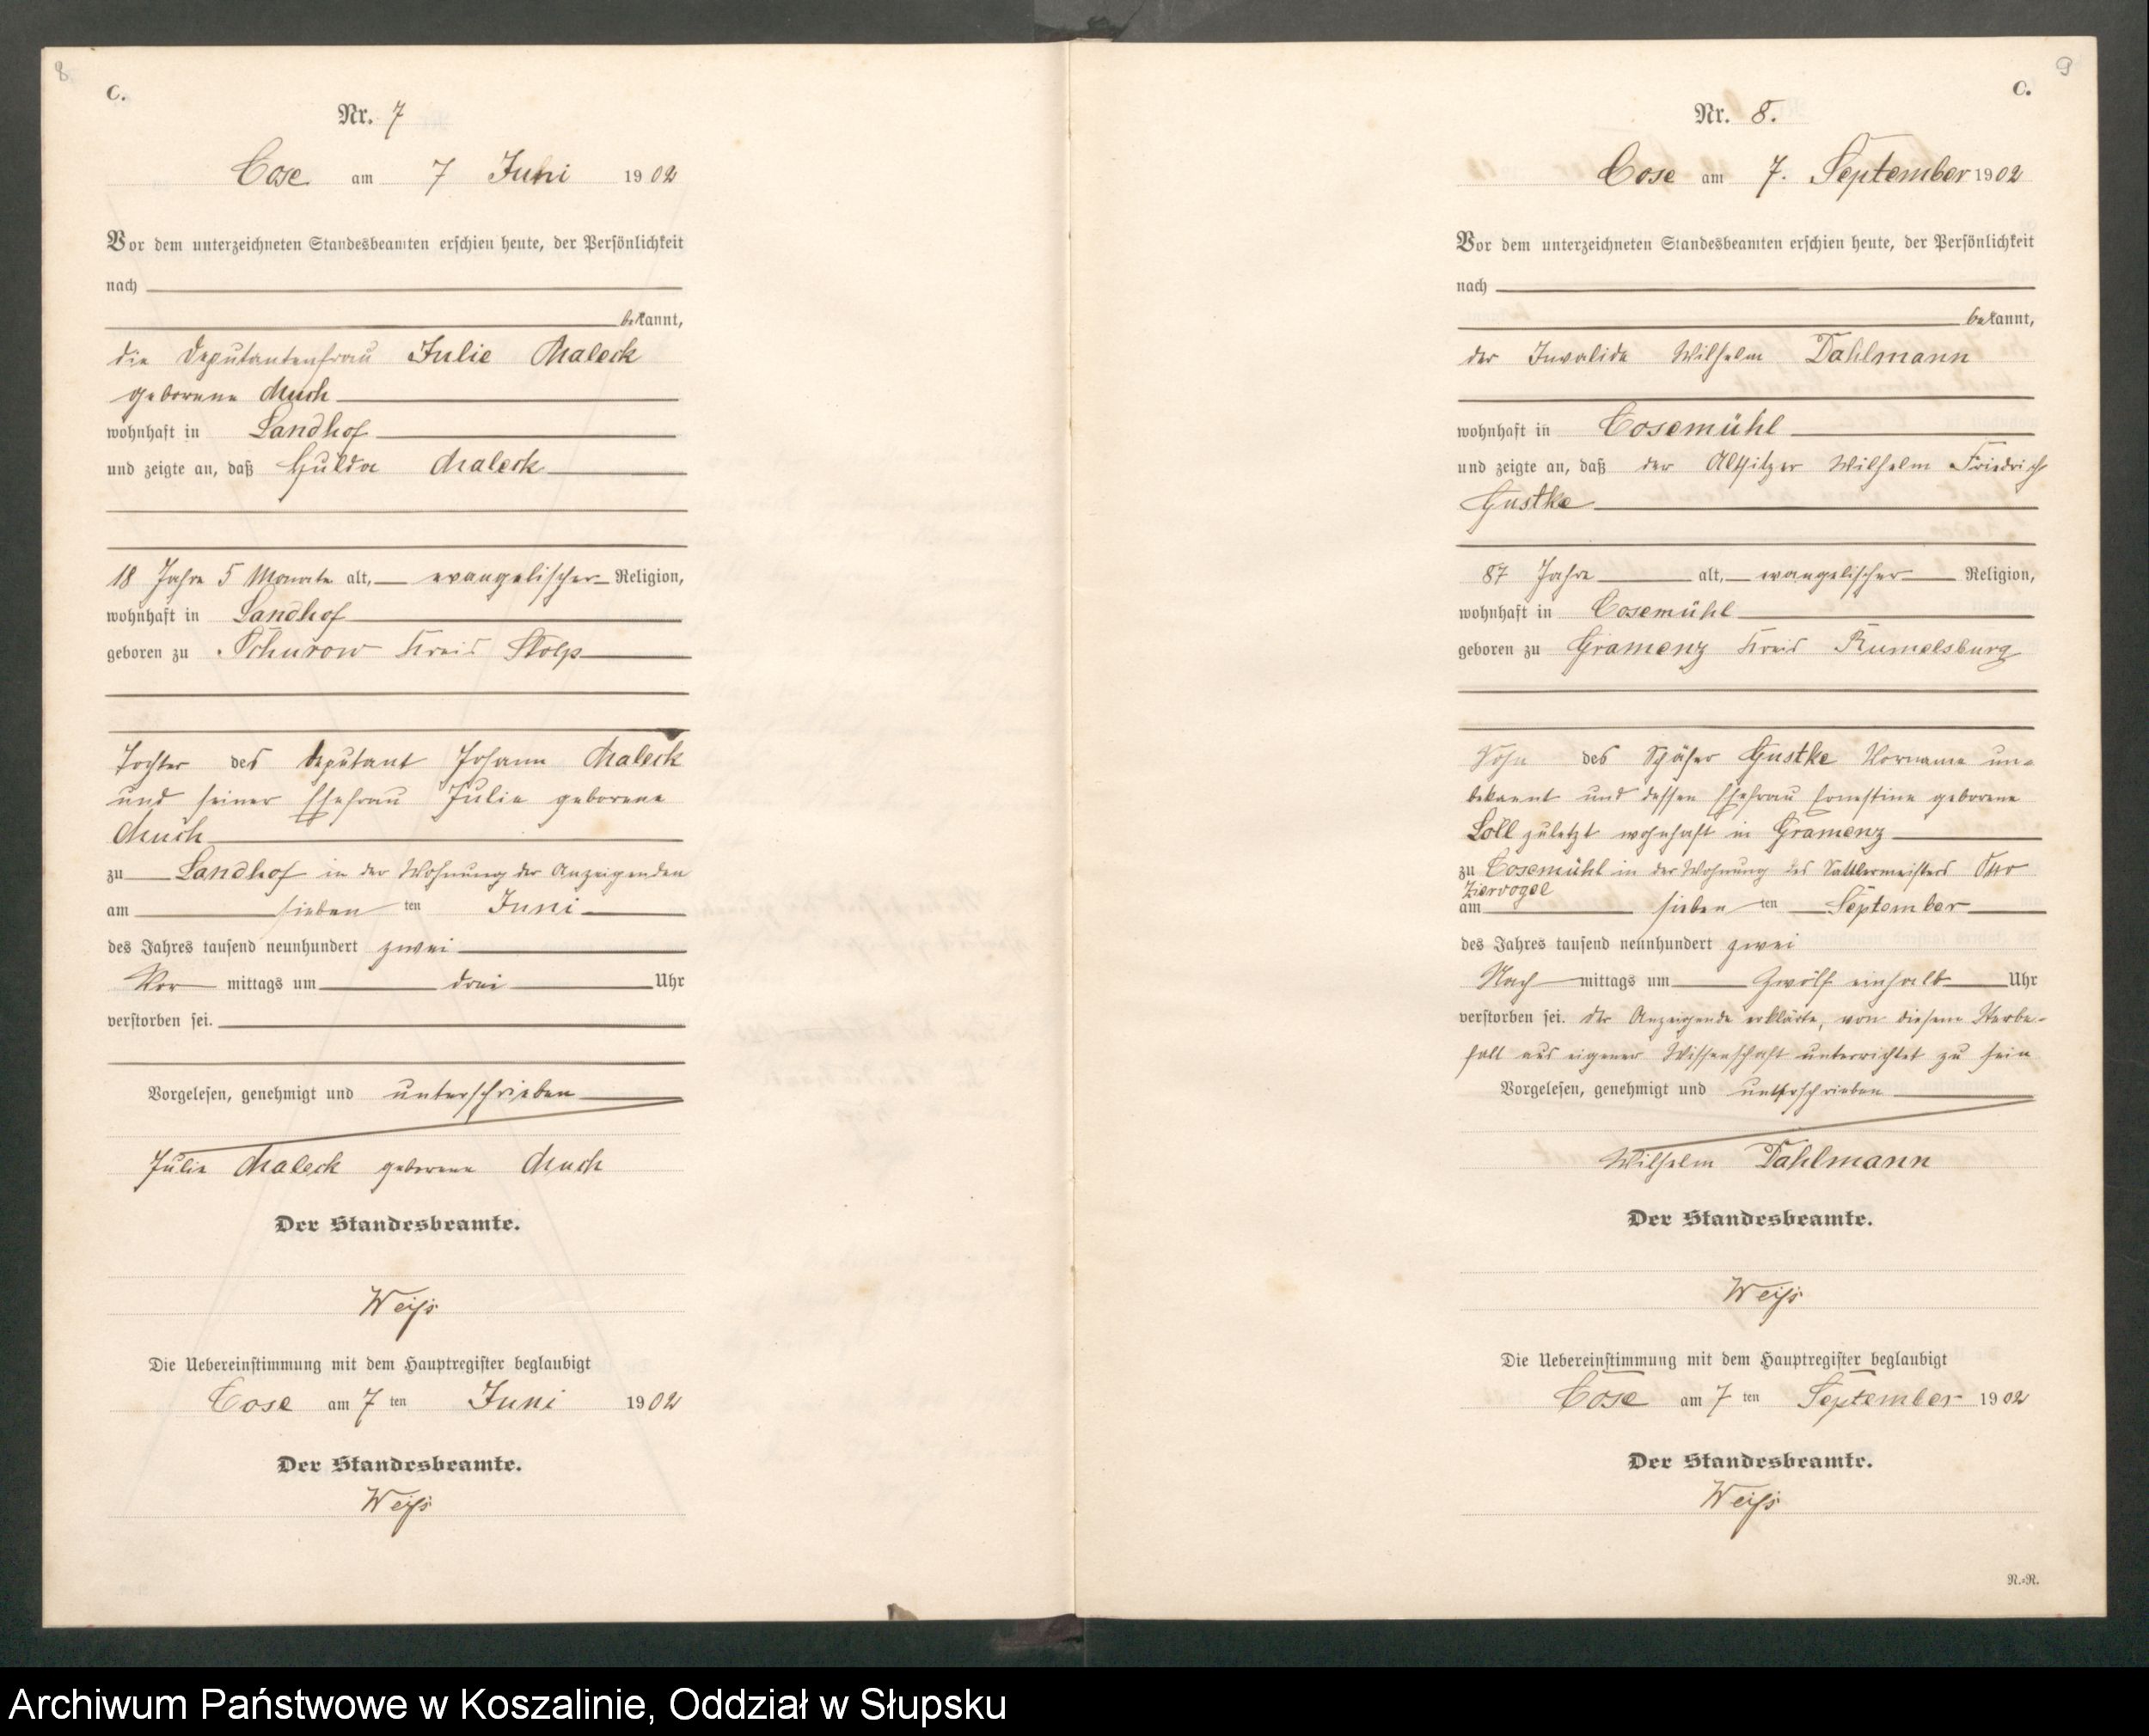 8
C.
Nr. 7
Cose am 7 Juni 1902
Vor dem unterzeichneten Standesbeamten erschien heute, der Persönlichkeit
nach
bekannt,
die Deputantenfrau Julie Maleck
geborene Much
wohnhaft in Landhof
und zeigte an, daß Hulda Maleck
18 Jahre 5 Monate alt, evangelischer Religion,
wohnhaft in Landhof
geboren zu Schurow Kreis Stolp
Tochter des Deputant Johann Maleck
und seiner Ehefrau Julie geborene
Much
zu Landhof in der Wohnung der Anzeigenden
am sieben ten Juni
des Jahres tausend neunhundert zwei
Vor mittags um drei Uhr
verstorben sei.
Vorgelesen, genehmigt und unterschrieben
Julie Maleck geborene Much
Der Standesbeamte.
Weiß
Die Uebereinstimmung mit dem Hauptregister beglaubigt
Cose am 7 ten Juni 1902
Der Standesbeamte.
Weiß
9
C.
Nr. 8.
Cose am 7. September 1902
Vor dem unterzeichneten Standesbeamten erschien heute, der Persönlichkeit
nach
bekannt,
der Invalide Wilhelm Dahlmann
wohnhaft in Cosemühl
und zeigte an, daß der Altsitzer Wilhelm Friedrich
Gustke
87 Jahre alt, evangelischer Religion,
wohnhaft in Cosemühl
geboren zu Gramenz Kreis Rumelsburg
Sohn des Schäfer Gustke Vorname un-
bekannt und dessen Ehefrau Ernestine geborene
Loll zuletzt wohnhaft in Gramenz
zu Cosemühl in der Wohnung des Sattlermeisters Otto
Ziervogel
am sieben ten September
des Jahres tausend neunhundert zwei
Nach mittags um zwölf einhalb Uhr
verstorben sei. Der Anzeigende erklärte, von diesem Sterbe-
fall aus eigener Wissenschaft unterrichtet zu sein
Vorgelesen, genehmigt und unterschrieben
Wilhelm Dahlmann
Der Standesbeamte.
Weiß
Die Uebereinstimmung mit dem Hauptregister beglaubigt
Cose am 7 ten September 1902
Der Standesbeamte.
Weiß
R.-R.
Archiwum Państwowe w Koszalinie, Oddział w Słupsku